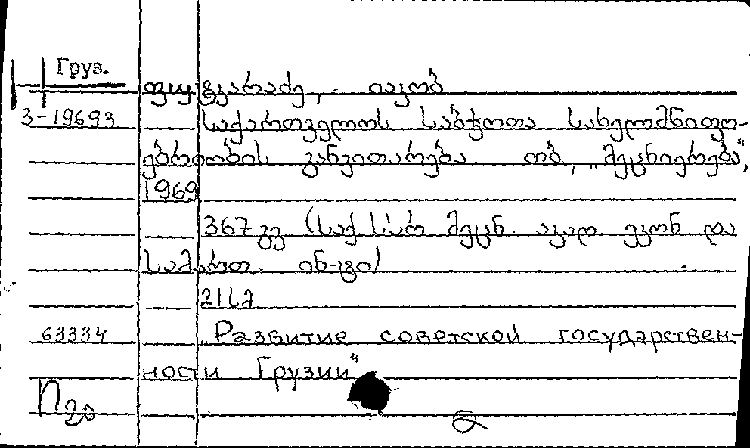 Груз.
ფუტკარაძე, იაკობ
3-19693 საქართველოს საბჭოთა სახელმწიფო-
ებრიობის განვითარება თბ, „მეცნიერება",
1969
367 გვ (საქ სსრ მეცნ. აკად ეკონ და
სამართ. ინ-ტი)
63334 „Развитие советской государствен-
ности Грузии"